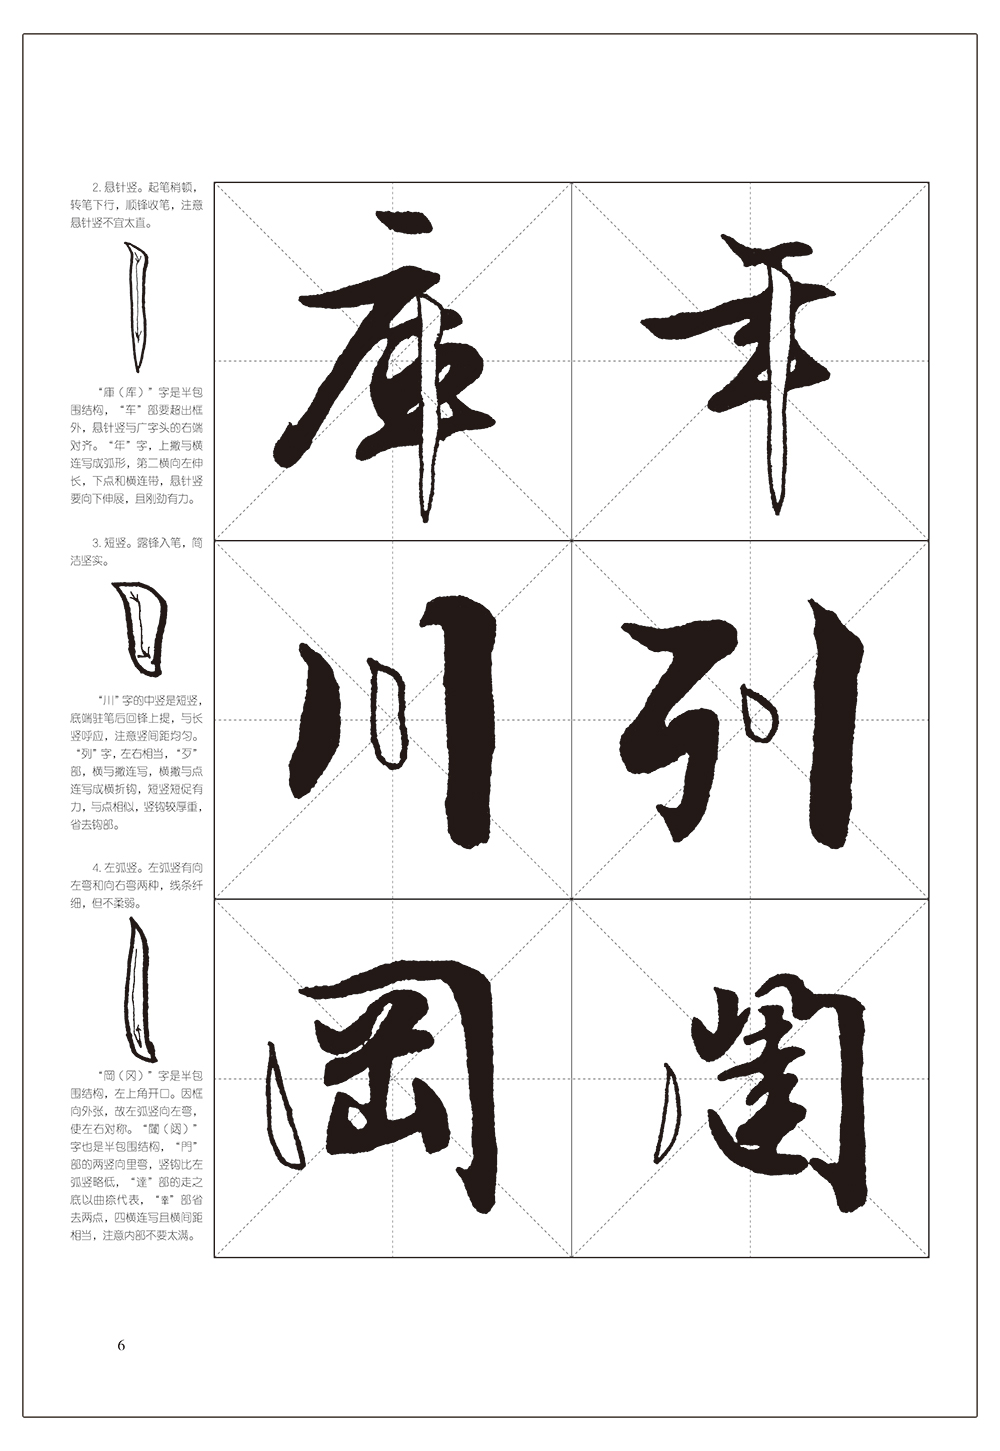 2. 悬针竖。起笔稍顿，
转笔下行，顺锋收笔，注意
悬针竖不宜太直。
“庫（库）”字是半包
围结构，“车”部要超出框
外，悬针竖与广字头的右端
对齐。“年”字，上撇与横
连写成弧形，第二横向左伸
长，下点和横连带，悬针竖
要向下伸展，且刚劲有力。
3. 短竖。露锋入笔，简
洁坚实。
“川”字的中竖是短竖，
底端驻笔后回锋上提，与长
竖呼应，注意竖间距均匀。
“列”字，左右相当，“歹”
部，横与撇连写，横撇与点
连写成横折钩，短竖短促有
力，与点相似，竖钩较厚重，
省去钩部。
4. 左弧竖。左弧竖有向
左弯和向右弯两种，线条纤
细，但不柔弱。
“岡（冈）”字是半包
围结构，左上角开口。因框
向外张，故左弧竖向左弯，
使左右对称。“闥（闼）”
字也是半包围结构，“門”
部的两竖向里弯，竖钩比左
弧竖略低，“達”部的走之
底以曲捺代表，“幸”部省
去两点，四横连写且横间距
相当，注意内部不要太满。
庫年
川列
岡闥
6